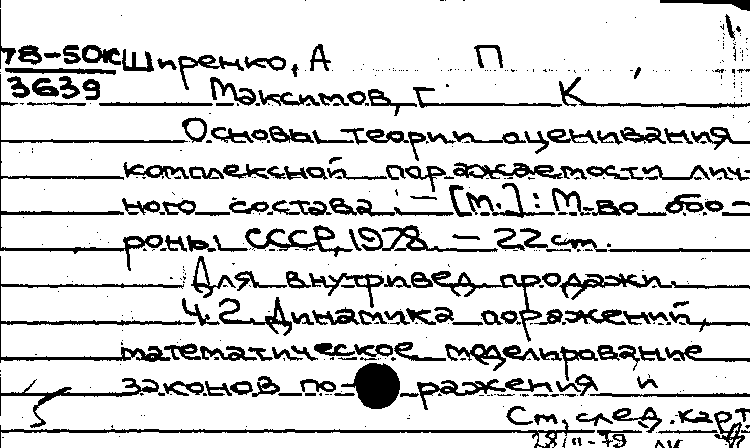 1.
78-50к Ширенко, А П
3639 Максимов, Г К
Основы теории оценивания
комплексной поражаемости лич-
ного состава. — [М.] : М-во обо-
роны СССР, 1978. — 22 ст.
Для внутривед. продажи.
Ч. 2. Динамика поражений,
математическое моделирование
законов по- ражения и
См. след. карт
28/II-79